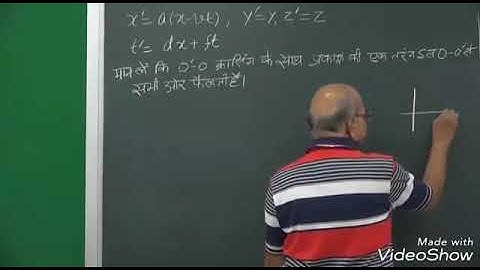 x'= a(x-vt), y'=y, z'=z
t'= dx+ft
मान लें कि O'-O क्रासिंग के साथ प्रकाश की एक तरंग O-O' से
सभी ओर फैलती है।
Made with
VideoShow